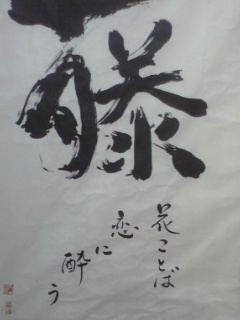 藤
花ことば
恋に
酔う